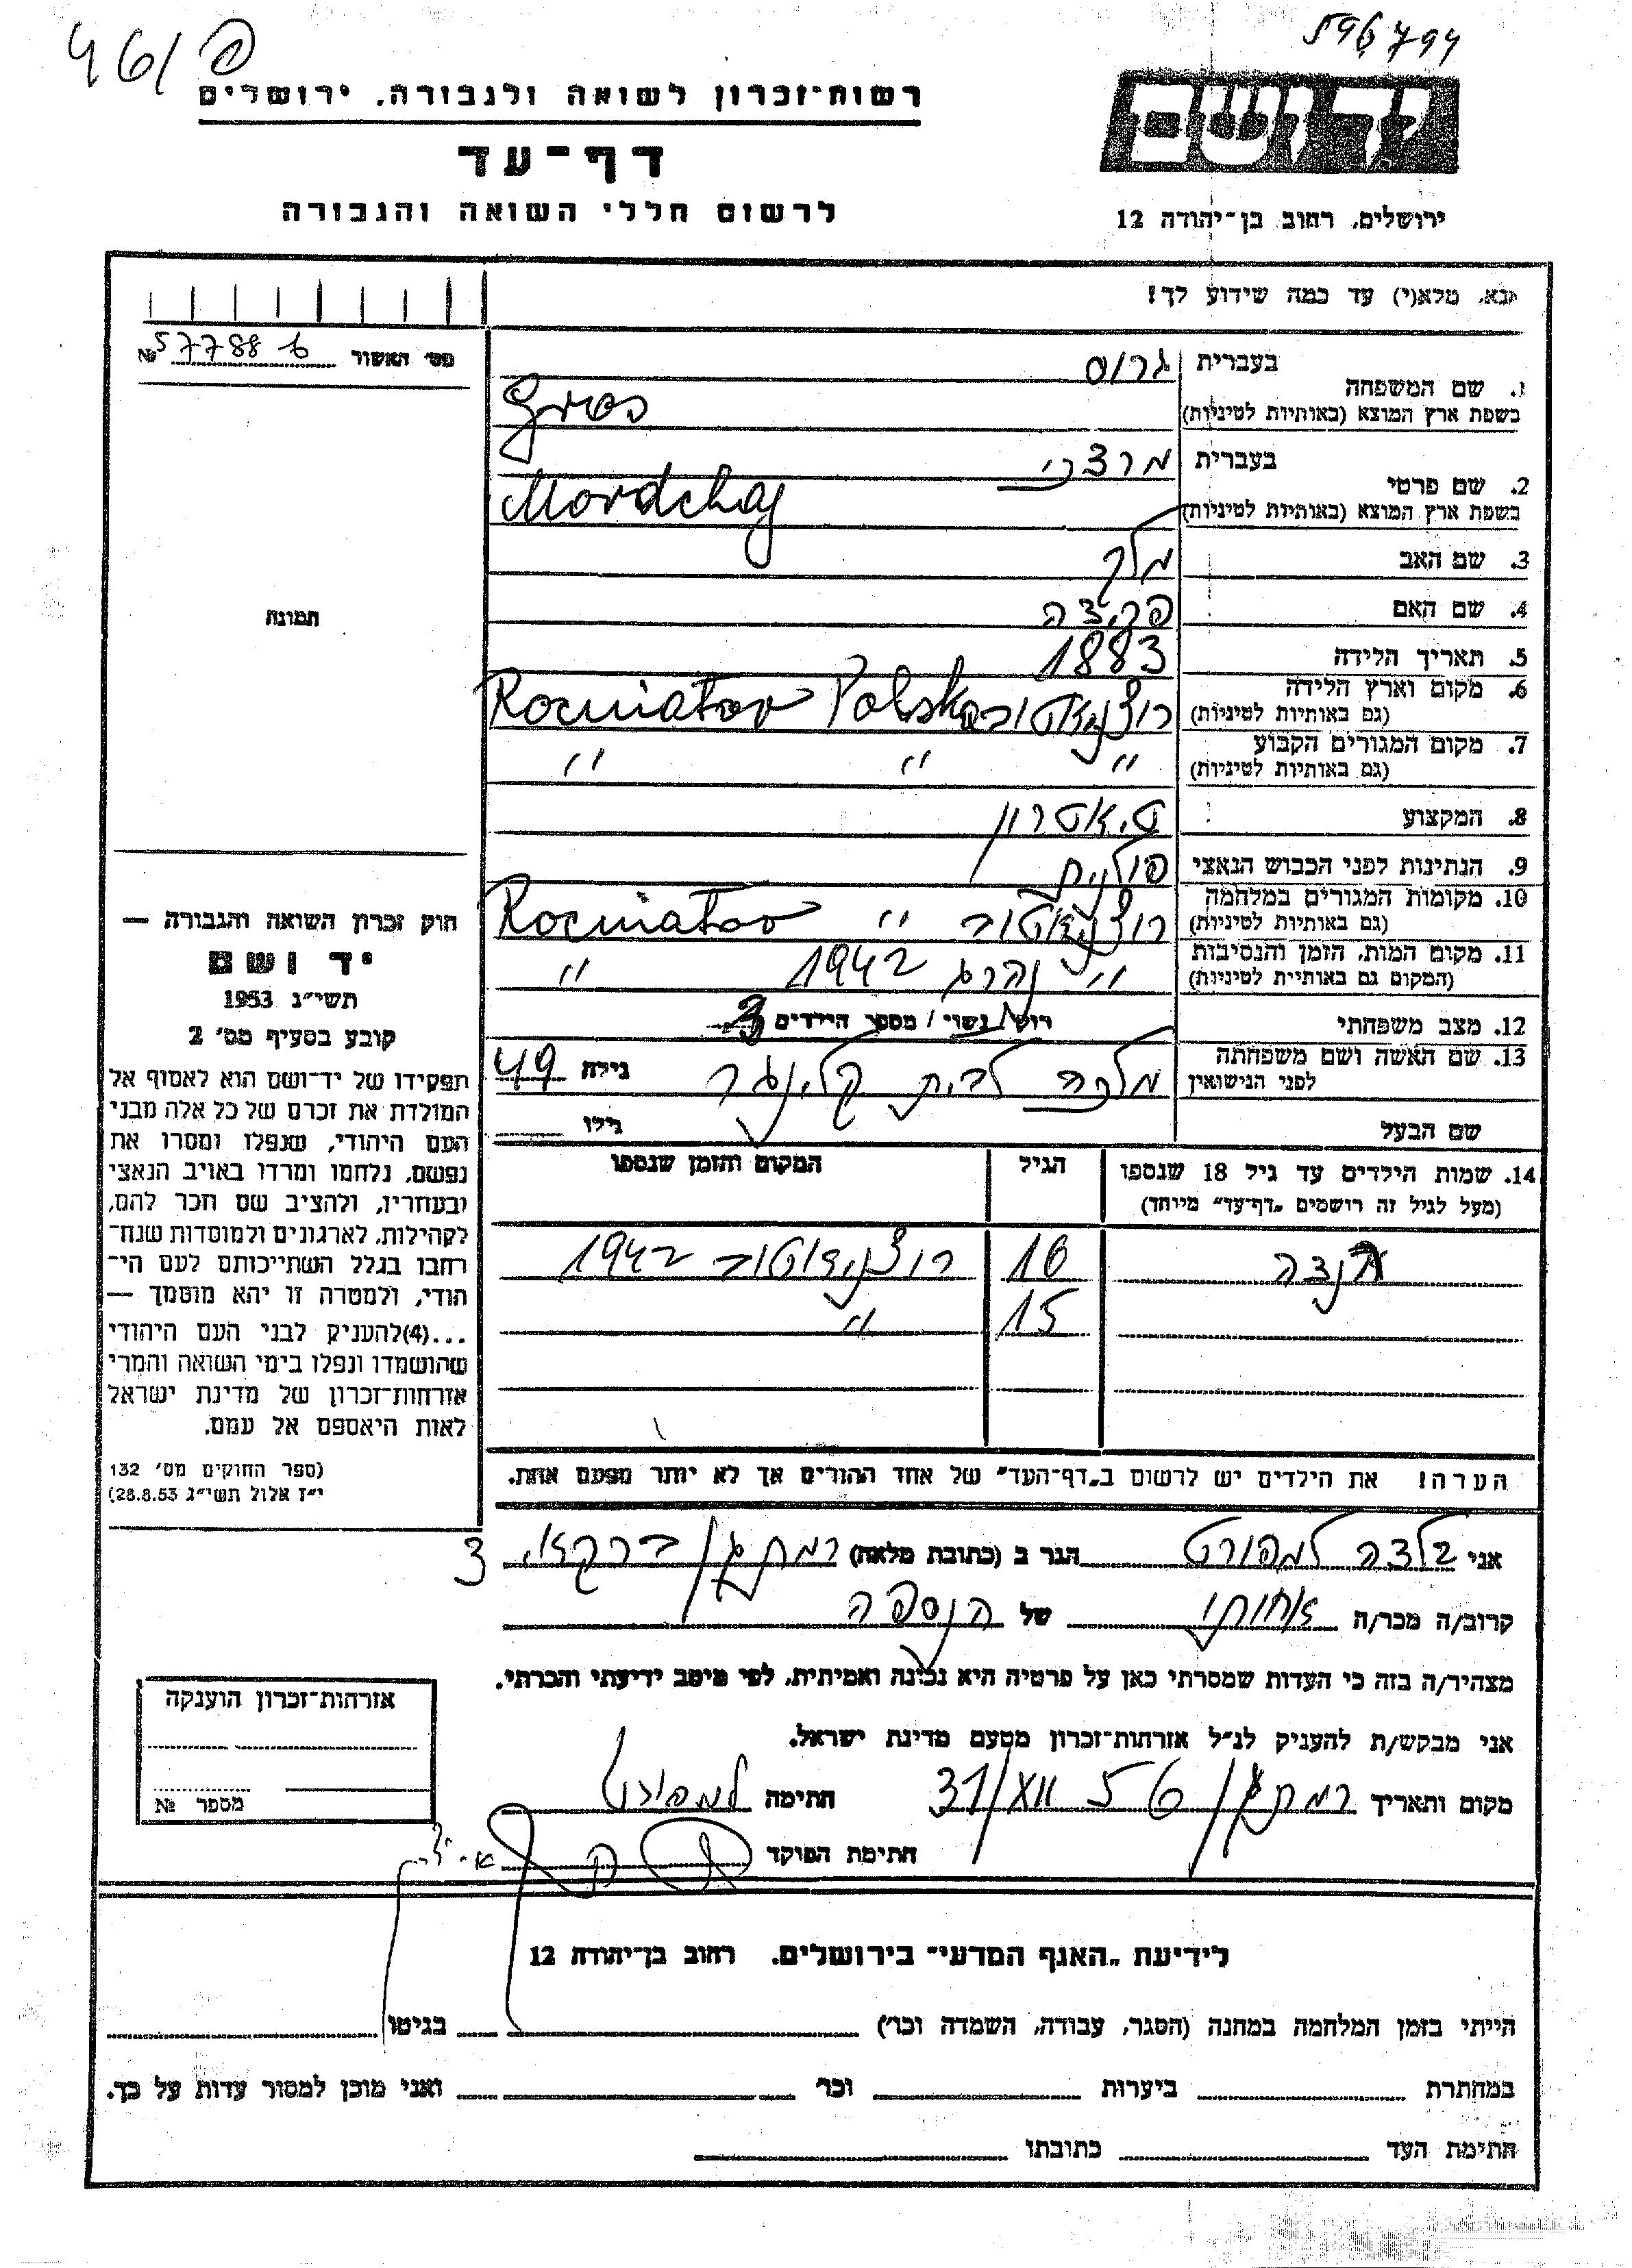 596794
461/פ
יד ושם
ירושלים, רחוב בן־יהודה 12
רשות־זכרון לשואה ולגבורה, ירושלים
דף־עד
לרשום חללי השואה והגבורה
נא, מלא(י) עד כמה שידוע לך!
מס׳ האשור № 57788 b
תמונה
1. שם המשפחה בעברית גרוס
בשפת ארץ המוצא (באותיות לטיניות) Gros
2. שם פרטי בעברית מרדכי
בשפת ארץ המוצא (באותיות לטיניות) Mordchaj
3. שם האב מלך
4. שם האם
5. תאריך הלידה 1883
6. מקום וארץ הלידה
(גם באותיות לטיניות) Rozniatov Polska
7. מקום המגורים הקבוע
(גם באותיות לטיניות) " " "
8. המקצוע
9. הנתינות לפני הכבוש הנאצי פולנית
10. מקומות המגורים במלחמה
(גם באותיות לטיניות) " Rozniatov
11. מקום המות, הזמן והנסיבות
(המקום גם באותיות לטיניות) " נהרג 1942 "
12. מצב משפחתי רוק / נשוי / מספר הילדים 3
13. שם האשה ושם משפחתה
לפני הנישואין מלכה לבית קלינגר גילה 49
שם הבעל גילו
14. שמות הילדים עד גיל 18 שנספו הגיל המקום והזמן שנספו
(מעל לגיל זה רושמים „דף־עד״ מיוחד)
16 1942
15 "
הערה! את הילדים יש לרשום ב„דף־העד״ של אחד ההורים אך לא יותר מפעם אחת.
חוק זכרון השואה והגבורה —
יד ושם
תשי״ג 1953
קובע בסעיף מס׳ 2
תפקידו של יד־ושם הוא לאסוף אל
המולדת את זכרם של כל אלה מבני
העם היהודי, שנפלו ומסרו את
נפשם, נלחמו ומרדו באויב הנאצי
ובעוזריו, ולהציב שם וזכר להם,
לקהילות, לארגונים ולמוסדות שנח־
רבו בגלל השתייכותם לעם הי־
הודי, ולמטרה זו יהא מוסמך —
...(4)להעניק לבני העם היהודי
שהושמדו ונפלו בימי השואה והמרי
אזרחות־זכרון של מדינת ישראל
לאות היאספם אל עמם.
(ספר החוקים מס׳ 132
י״ז אלול תשי״ג 28.8.53)
אני הגר ב (כתובת מלאה) רמת גן 3
קרוב/ה מכר/ה אחותו של הנספה
מצהיר/ה בזה כי העדות שמסרתי כאן על פרטיה היא נכונה ואמיתית, לפי מיטב ידיעתי והכרתי.
אני מבקש/ת להעניק לנ״ל אזרחות־זכרון מטעם מדינת ישראל.
מקום ותאריך רמת גן 31/XII 56 חתימה
חתימת הפוקד
אזרחות־זכרון הוענקה
מספר №
לידיעת „האגף המדעי״ בירושלים, רחוב בן־יהודה 12
הייתי בזמן המלחמה במחנה (הסגר, עבודה, השמדה וכו׳) בגיטו
במחתרת ביערות וכו׳ ואני מוכן למסור עדות על כך.
חתימת העד כתובתו